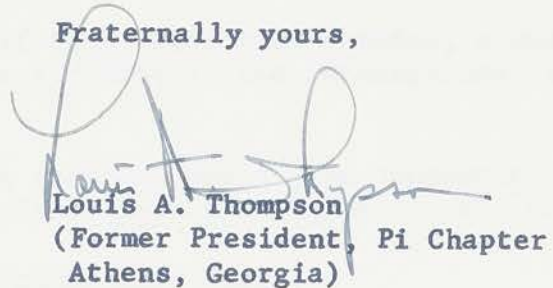 Fraternally yours,
Louis A. Thompson
Louis A. Thompson
(Former President, Pi Chapter
Athens, Georgia)